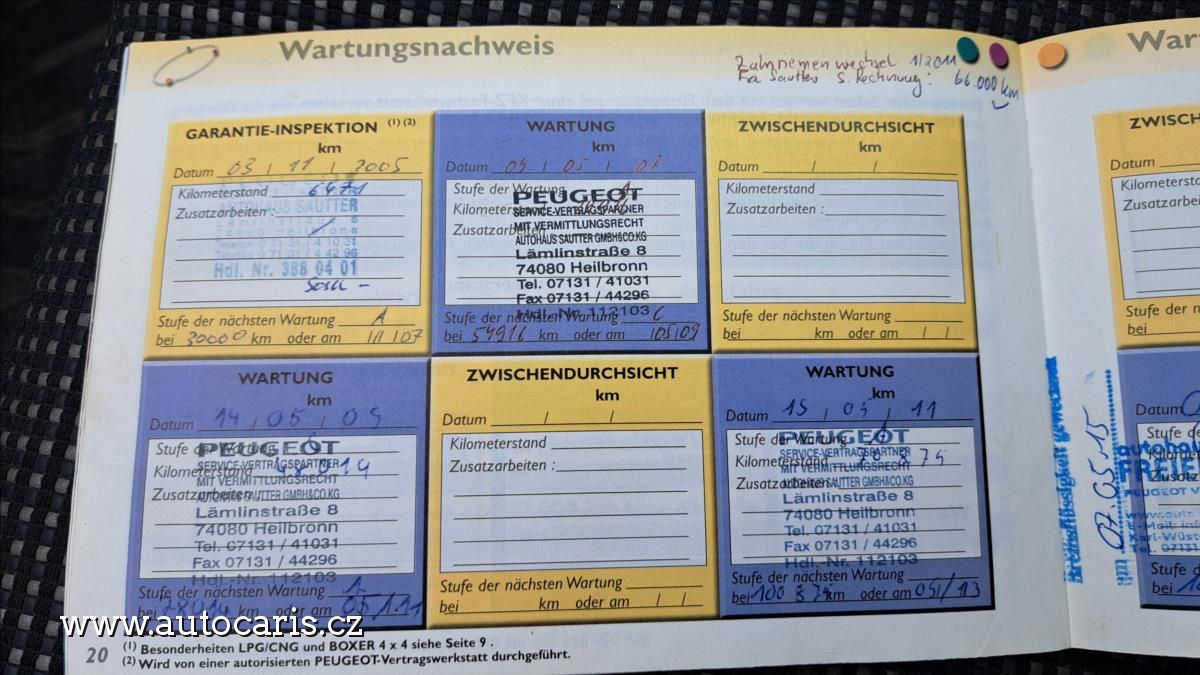 Wartungsnachweis
Zahnriemen wechsel 1/2011
Fa Sautter s. Rechnung: 66.000 km
GARANTIE-INSPEKTION (1) (2)
km
Datum 03 / 11 / 2005
Kilometerstand
Zusatzarbeiten :
AUTOHAUS SAUTTER
Lämlinstraße 8
74080 Heilbronn
Telefon 0 71 31 / 4 10 31
Telefax 0 71 31 / 4 42 96
Hdl. Nr. 388 04 01
Stufe der nächsten Wartung A
bei 30000 km oder am 11/07
WARTUNG
km
Datum 05
Stufe der Wartung
PEUGEOT
SERVICE-VERTRAGSPARTNER
MIT VERMITTLUNGSRECHT
AUTOHAUS SAUTTER GMBH&CO.KG
Lämlinstraße 8
74080 Heilbronn
Tel. 07131 / 41031
Fax 07131 / 44296
Hdl.-Nr. 112103
Stufe der nächsten Wartung C
bei 54916 km oder am 05/09
ZWISCHENDURCHSICHT
km
Datum / /
Kilometerstand
Zusatzarbeiten :
Stufe der nächsten Wartung
bei km oder am / /
WARTUNG
km
Datum 14 / 05 / 09
Stufe der Wartung
PEUGEOT
Kilometerstand 48014
SERVICE-VERTRAGSPARTNER
MIT VERMITTLUNGSRECHT
Zusatzarbeiten
AUTOHAUS SAUTTER GMBH&CO.KG
Lämlinstraße 8
74080 Heilbronn
Tel. 07131 / 41031
Fax 07131 / 44296
Hdl.-Nr. 112103
Stufe der nächsten Wartung A
bei km oder am 05/11
ZWISCHENDURCHSICHT
km
Datum / /
Kilometerstand
Zusatzarbeiten :
Stufe der nächsten Wartung
bei km oder am / /
WARTUNG
km
Datum 15 / 05 / 11
Stufe der Wartung
PEUGEOT
Kilometerstand
SERVICE-VERTRAGSPARTNER
MIT VERMITTLUNGSRECHT
Zusatzarbeiten
AUTOHAUS SAUTTER GMBH&CO.KG
Lämlinstraße 8
74080 Heilbronn
Tel. 07131 / 41031
Fax 07131 / 44296
Hdl.-Nr. 112103
Stufe der nächsten Wartung
bei 100 875 km oder am 05/13
(1) Besonderheiten LPG/CNG und BOXER 4 x 4 siehe Seite 9 .
(2) Wird von einer autorisierten PEUGEOT-Vertragswerkstatt durchgeführt.
20
www.autocaris.cz
War
ZWISC
Datum
Kilometersta
Zusatzarbei
Stufe der n
bei
Bremsflüssigkeit gewechselt
07.05.15
Datum
Stufe de
autohau
FREIE
PEUGEOT V
www.auto
E-Mail: in
Karl-Wüst
Tel. 0713
Stufe der